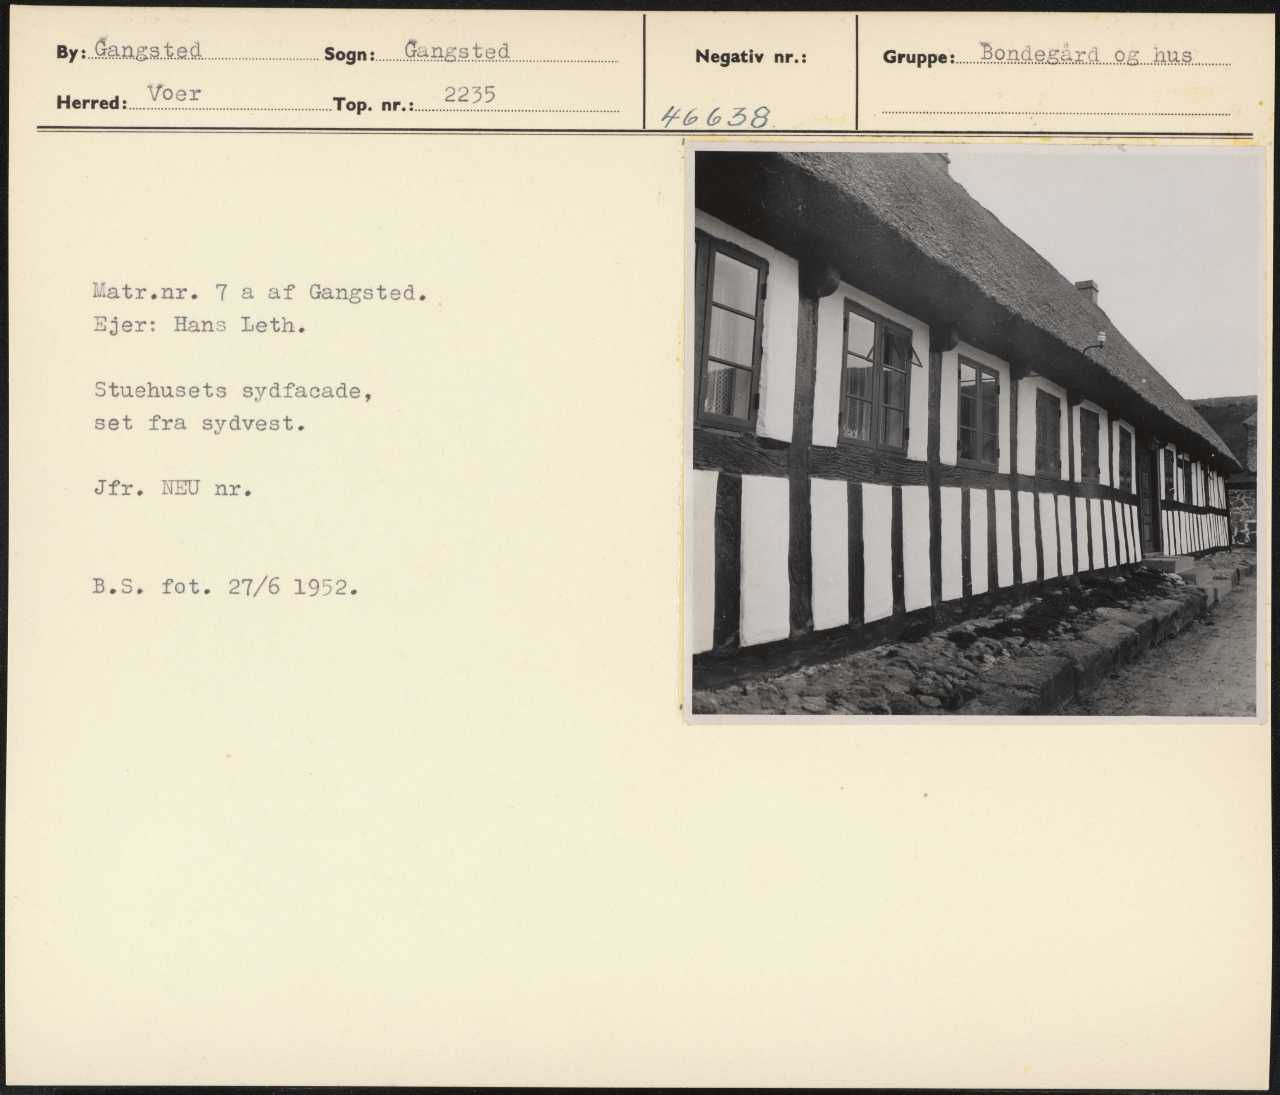 By: Gangsted Sogn: Gangsted Negativ nr.: Gruppe: Bondegård og hus
Herred: Voer Top. nr.: 2235 46638
Matr.nr. 7 a af Gangsted.
Ejer: Hans Leth.
Stuehusets sydfacade,
set fra sydvest.
Jfr. NEU nr.
B.S. fot. 27/6 1952.